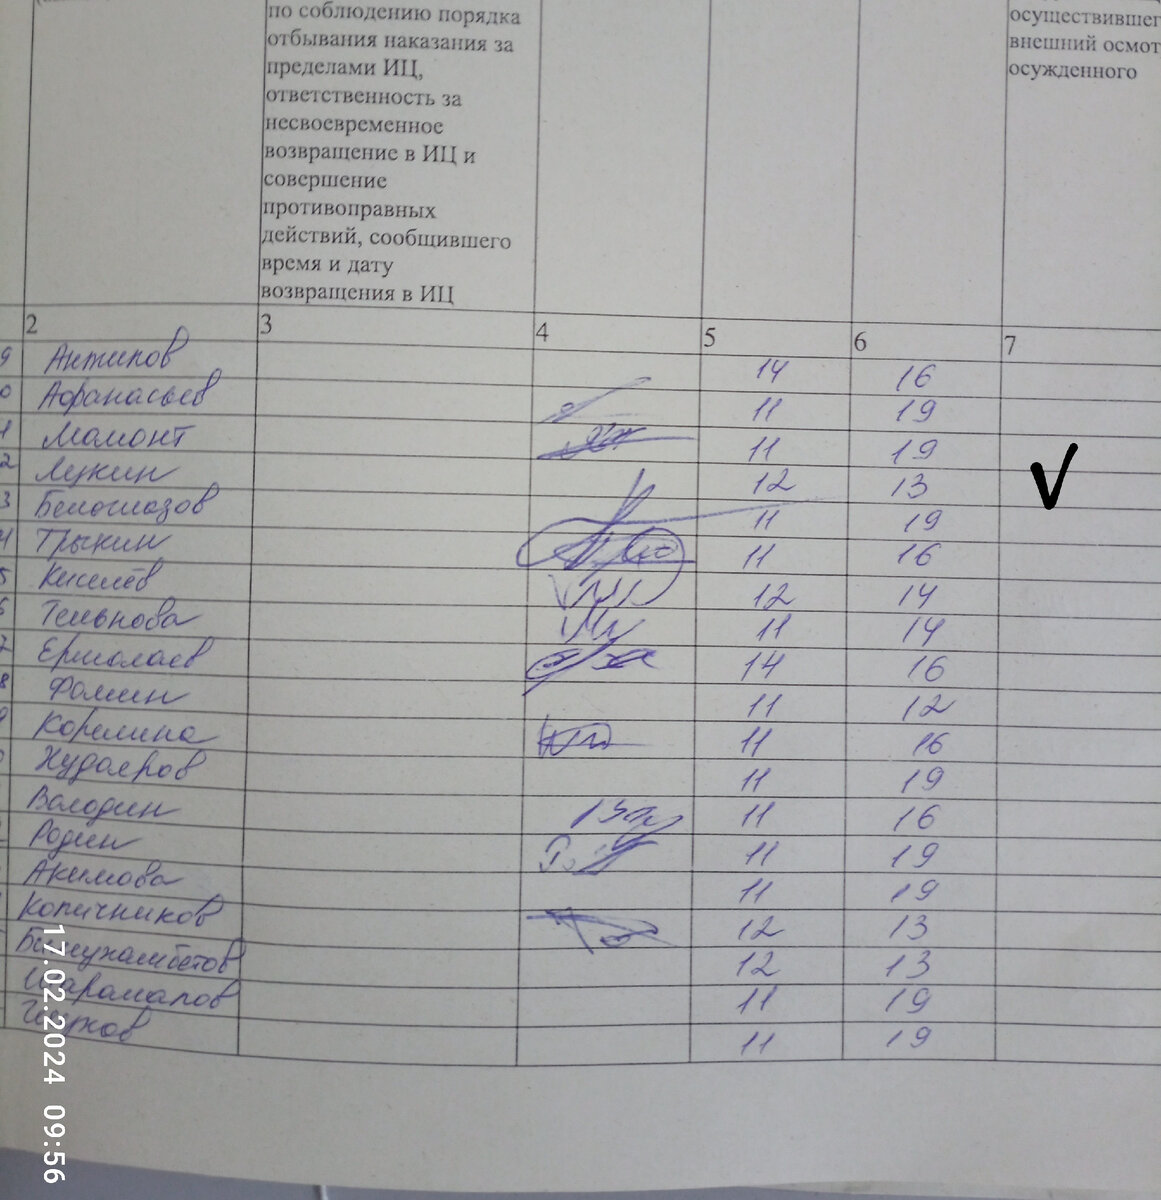 по соблюдению порядка
отбывания наказания за
пределами ИЦ,
ответственность за
несвоевременное
возвращение в ИЦ и
совершение
противоправных
действий, сообщившего
время и дату
возвращения в ИЦ
осуществившег
внешний осмот
осужденного
2 3 4 5 6 7
9 Антипов 14 16
0 Афанасьев 11 19
1 Мамонт 11 19
2 Лукин 12 13
3 Белоглазов 11 19
4 Трыкин 11 16
5 Киселёв 12 14
6 Тельнова 11 14
7 Ермолаев 14 16
8 Фомин 11 12
9 Корелина 11 16
0 Худояров 11 19
Володин 11 16
Родин 11 19
Акимова 11 19
Копичников 12 13
Бимухамбетов 12 13
Шарамапов 11 19
11 19
17.02.2024 09:56